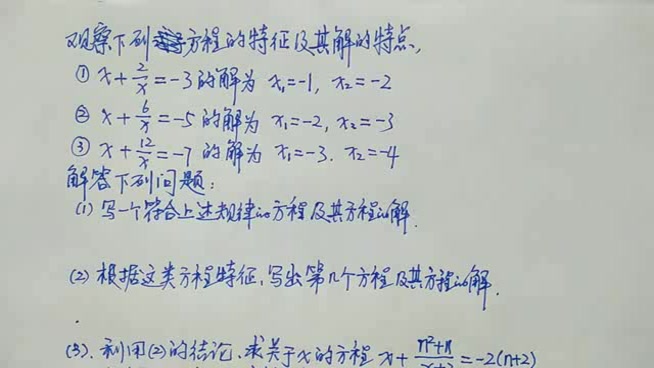 观察下列方程的特征及其解的特点,
① x + 2/x = -3 的解为 x₁=-1, x₂=-2
② x + 6/x = -5 的解为 x₁=-2, x₂=-3
③ x + 12/x = -7 的解为 x₁=-3. x₂=-4
解答下列问题:
(1) 写一个符合上述规律的方程及其方程的解.
(2) 根据这类方程特征,写出第n个方程及其方程的解.
(3). 利用(2)的结论,求关于x的方程 x + n²+n/x+2 = -2(n+2)